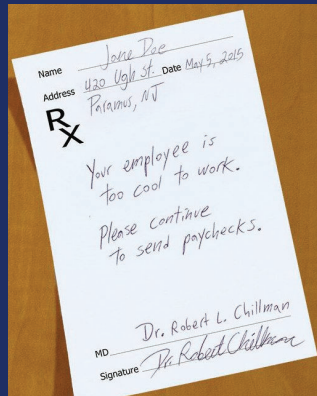 Name Jane Doe
Address 420 Ugh St. Date May 5, 2015
Paramus, NJ
Rx
Your employee is
too cool to work.
Please continue
to send paychecks.
MD Dr. Robert L. Chillman
Signature Dr. Robert Chillman